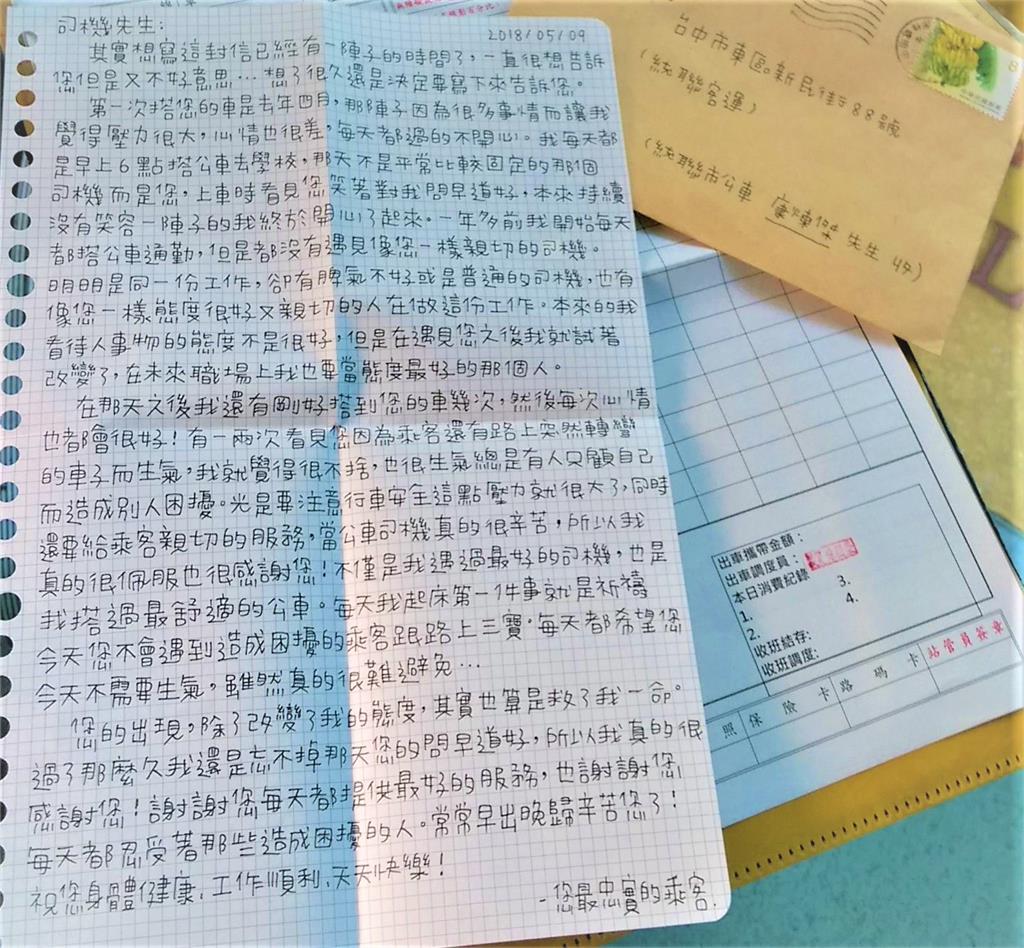 司機先生：
2018/05/09
其實想寫這封信已經有一陣子的時間了，一直很想告訴
您但是又不好意思…想了很久還是決定要寫下來告訴您。
第一次搭您的車是去年四月，那陣子因為很多事情而讓我
覺得壓力很大，心情也很差，每天都過的不開心。我每天都
是早上6點搭公車去學校，那天不是平常比較固定的那個
司機而是您，上車時看見您笑著對我問早道好，本來持續
沒有笑容一陣子的我終於開心了起來。一年多前我開始每天
都搭公車通勤，但是都沒有遇見像您一樣親切的司機。
明明是同一份工作，卻有脾氣不好或是普通的司機，也有
像您一樣態度很好又親切的人在做這份工作。本來的我
看待人事物的態度不是很好，但是在遇見您之後我就試著
改變了，在未來職場上我也要當態度最好的那個人。
在那天之後我還有剛好搭到您的車幾次，然後每次心情
也都會很好！有一兩次看見您因為乘客還有路上突然轉彎
的車子而生氣，我就覺得很不捨，也很生氣總是有人只顧自己
而造成別人困擾。光是要注意行車安全這點壓力就很大了，同時
還要給乘客親切的服務，當公車司機真的很辛苦，所以我
真的很佩服也很感謝您！不僅是我遇過最好的司機，也是
我搭過最舒適的公車。每天我起床第一件事就是祈禱
今天您不會遇到造成困擾的乘客跟路上三寶。每天都希望您
今天不需要生氣，雖然真的很難避免…
您的出現，除了改變了我的態度，其實也算是救了我一命。
過了那麼久我還是忘不掉那天您的問早道好，所以我真的很
感謝您！謝謝您每天都提供最好的服務，也謝謝您
每天都忍受著那些造成困擾的人。常常早出晚歸辛苦您了！
祝您身體健康、工作順利、天天快樂！
-您最忠實的乘客.
台中市東區新民街88號
(統聯客運)
(統聯市公車 康煉傑 先生 收)
8
出車攜帶金額：
出車調度員：
本日消費紀錄
1.
2.
3.
4.
收班結存：
收班調度：
照 保 險 卡 路 碼 卡 站管員簽章